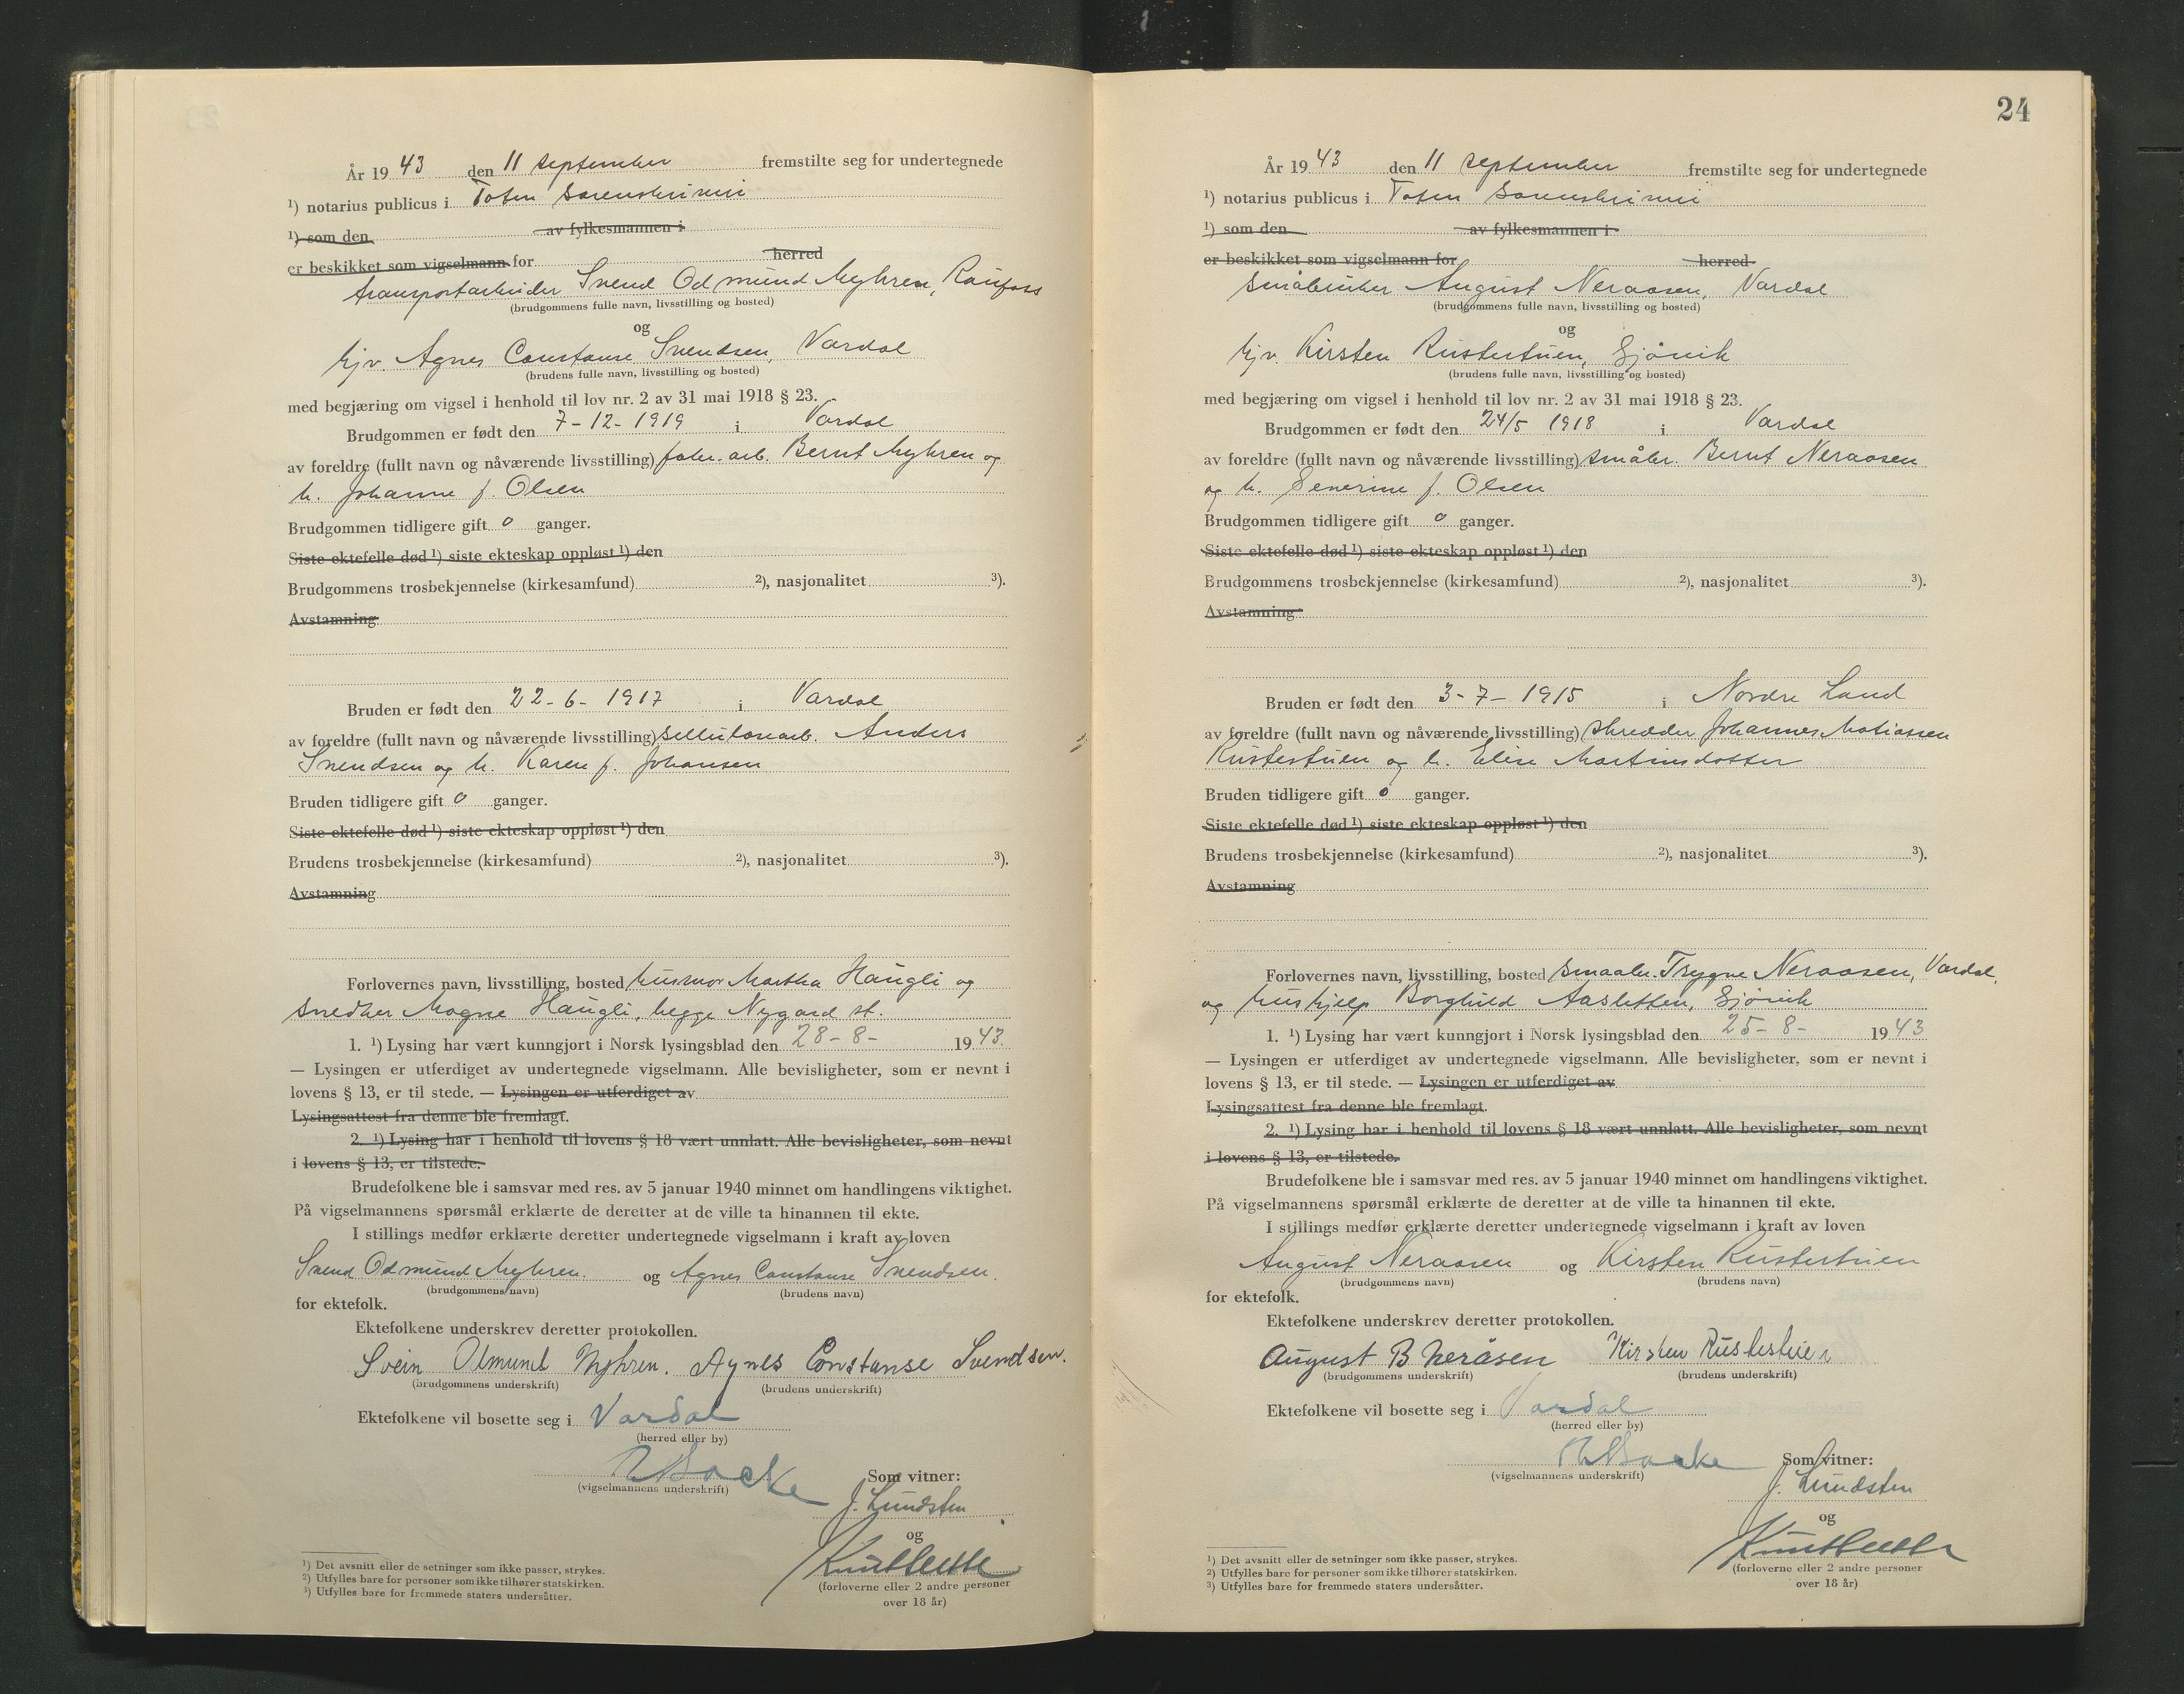 År 19 43 den 11 september fremstilte seg for undertegnede
¹) notarius publicus i Toten sorenskriveri
¹) som den av fylkesmannen i
er beskikket som vigselmann for herred
transportarbeider Svend Odmund Myhren, Raufoss
(brudgommens fulle navn, livsstilling og bosted)
og
hjv. Agnes Constanse Svendsen, Vardal
(brudens fulle navn, livsstilling og bosted)
med begjæring om vigsel i henhold til lov nr. 2 av 31 mai 1918 § 23.
Brudgommen er født den 7-12-1919 i Vardal
av foreldre (fullt navn og nåværende livsstilling) fabr. arb. Bernt Myhren og
h. Johanne f. Olsen
Brudgommen tidligere gift 0 ganger.
Siste ektefelle død ¹) siste ekteskap oppløst ¹) den
Brudgommens trosbekjennelse (kirkesamfund) ²), nasjonalitet ³).
Avstamning
Bruden er født den 22-6-1917 i Vardal
av foreldre (fullt navn og nåværende livsstilling) sellulosearb. Anders
Svendsen og h. Karen f. Johansen
Bruden tidligere gift 0 ganger.
Siste ektefelle død ¹) siste ekteskap oppløst ¹) den
Brudens trosbekjennelse (kirkesamfund) ²), nasjonalitet ³).
Avstamning
Forlovernes navn, livsstilling, bosted husmor Martha Haugli og
snedker Magne Haugli, begge Nygard st.
1. ¹) Lysing har vært kunngjort i Norsk lysingsblad den 28-8- 19 43.
— Lysingen er utferdiget av undertegnede vigselmann. Alle bevisligheter, som er nevnt i
lovens § 13, er til stede. — Lysingen er utferdiget av
Lysingsattest fra denne ble fremlagt.
2. ¹) Lysing har i henhold til lovens § 18 vært unnlatt. Alle bevisligheter, som nevnt
i lovens § 13, er tilstede.
Brudefolkene ble i samsvar med res. av 5 januar 1940 minnet om handlingens viktighet.
På vigselmannens spørsmål erklærte de deretter at de ville ta hinannen til ekte.
I stillings medfør erklærte deretter undertegnede vigselmann i kraft av loven
Svend Odmund Myhren. og Agnes Constanse Svendsen.
(brudgommens navn) (brudens navn)
for ektefolk.
Ektefolkene underskrev deretter protokollen.
Svein Odmund Myhren. Agnes Constanse Svendsen.
(brudgommens underskrift) (brudens underskrift)
Ektefolkene vil bosette seg i Vardal
(herred eller by)
(vigselmannens underskrift) Som vitner:
J. Lundsten
og
(forloverne eller 2 andre personer
over 18 år)
¹) Det avsnitt eller de setninger som ikke passer, strykes.
²) Utfylles bare for personer som ikke tilhører statskirken.
³) Utfylles bare for fremmede staters undersåtter.
24
År 19 43 den 11 september fremstilte seg for undertegnede
¹) notarius publicus i Toten sorenskriveri
¹) som den av fylkesmannen i
er beskikket som vigselmann for herred
småbruker August Neraasen, Vardal
(brudgommens fulle navn, livsstilling og bosted)
og
hjv. Kirsten Rustestuen, Gjøvik
(brudens fulle navn, livsstilling og bosted)
med begjæring om vigsel i henhold til lov nr. 2 av 31 mai 1918 § 23.
Brudgommen er født den 24/5 1918 i Vardal
av foreldre (fullt navn og nåværende livsstilling) småbr. Bernt Neraasen
og h. Severine f. Olsen
Brudgommen tidligere gift 0 ganger.
Siste ektefelle død ¹) siste ekteskap oppløst ¹) den
Brudgommens trosbekjennelse (kirkesamfund) ²), nasjonalitet ³).
Avstamning
Bruden er født den 3-7-1915 i Nordre Land
av foreldre (fullt navn og nåværende livsstilling) skredder Johannes Matiassen
Rustestuen og h. Elise Martinsdotter
Bruden tidligere gift 0 ganger.
Siste ektefelle død ¹) siste ekteskap oppløst ¹) den
Brudens trosbekjennelse (kirkesamfund) ²), nasjonalitet ³).
Avstamning
Forlovernes navn, livsstilling, bosted smaabr. Trygve Neraasen, Vardal,
og hushjelp Borghild Aasletten, Gjøvik
1. ¹) Lysing har vært kunngjort i Norsk lysingsblad den 25-8- 19 43
— Lysingen er utferdiget av undertegnede vigselmann. Alle bevisligheter, som er nevnt i
lovens § 13, er til stede. — Lysingen er utferdiget av
Lysingsattest fra denne ble fremlagt.
2. ¹) Lysing har i henhold til lovens § 18 vært unnlatt. Alle bevisligheter, som nevnt
i lovens § 13, er tilstede.
Brudefolkene ble i samsvar med res. av 5 januar 1940 minnet om handlingens viktighet.
På vigselmannens spørsmål erklærte de deretter at de ville ta hinannen til ekte.
I stillings medfør erklærte deretter undertegnede vigselmann i kraft av loven
August Neraasen og Kirsten Rustestuen
(brudgommens navn) (brudens navn)
for ektefolk.
Ektefolkene underskrev deretter protokollen.
August B Neråsen Kirsten Rustestuen
(brudgommens underskrift) (brudens underskrift)
Ektefolkene vil bosette seg i Vardal
(herred eller by)
(vigselmannens underskrift) Som vitner:
J. Lundsten
og
(forloverne eller 2 andre personer
over 18 år)
¹) Det avsnitt eller de setninger som ikke passer, strykes.
²) Utfylles bare for personer som ikke tilhører statskirken.
³) Utfylles bare for fremmede staters undersåtter.